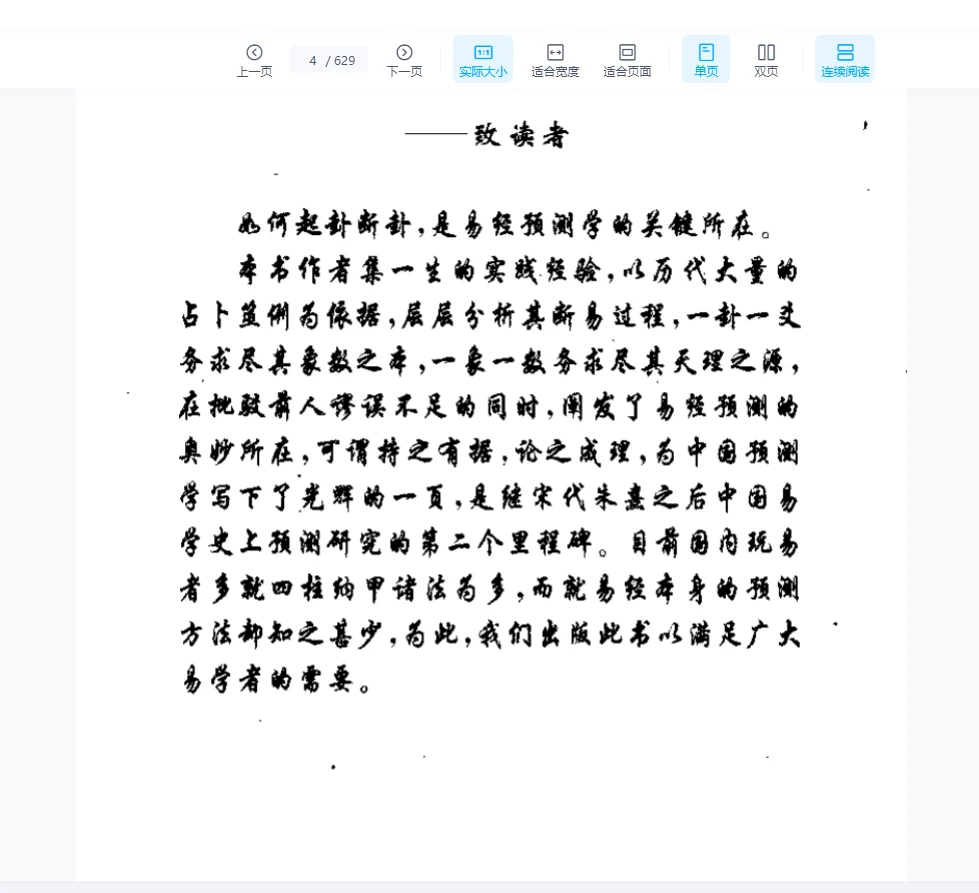 上一页
4 / 629
下一页
实际大小
适合宽度
适合页面
单页
双页
连续阅读
——致读者
如何起卦断卦，是易经预测学的关键所在。
本书作者集一生的实践经验，以历代大量的
占卜筮例为依据，层层分析其断易过程，一卦一爻
务求尽其象数之本，一象一数务求尽其天理之源，
在批驳前人谬误不足的同时，阐发了易经预测的
奥妙所在，可谓持之有据，论之成理，为中国预测
学写下了光辉的一页，是继宋代朱熹之后中国易
学史上预测研究的第二个里程碑。目前国内玩易
者多就四柱纳甲诸法为多，而就易经本身的预测
方法却知之甚少，为此，我们出版此书以满足广大
易学者的需要。